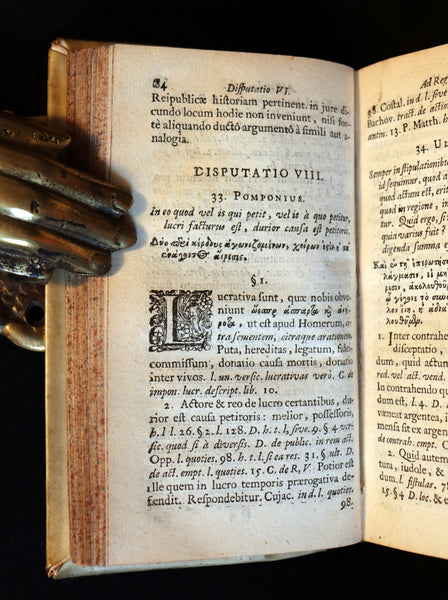 84 Disputatio VI.
Reipublicæ historiam pertinent. in jure di-
cundo locum hodie non inveniunt, nisi for-
te aliquando ducto argumento à simili aut a-
nalogia.
DISPUTATIO VIII.
33. POMPONIUS.
In eo quod vel is qui petit, vel is à quo petitur,
lucri facturus est, durior causa est petitoris.
Δύο περὶ κέρδους ἀγωνιζομένων, χείρων
αἵρεσις.
§ 1.
Lucrativa sunt, quæ nobis obve-
niunt
ut est apud Homerum,
citraque arationem.
Puta, hereditas, legatum, fidei-
commissum, donatio causa mortis, donatio
inter vivos. l. un. versic. lucrativas verò. C. de
impon. lucr. descript. lib. 10.
2. Actore & reo de lucro certantibus, du-
rior est causa petitoris: melior, possessoris,
h. l. l. 26. § 2. l. 128. D. h. t. l. sive. 9. § 4. ver-
sic. quod si à diversis. D. de public. in rem act.
Opp. l. quoties. 98. h. t. l. si ea res. 31. § ult. D.
de act. empt. l. quoties. 15. C. de R, V. Potior est
ille quem in lucro temporis prærogativa de-
fendit. Respondebitur. Cujac. in d. l. quoties.
98.
Ad Reg
98. Costal. in d. l. sive.
Bachov. tract. de acti
13. P. Matth. h
34. Ul
Semper in stipulationib
id sequimur, quod a
quod actum est, erit
quod in regione, in
tur. Quid ergo, si
quia varius fuit?
digenda summa e
1. Inter contrahen
disceptatio,
dum, quid actum
red. vel act. vend.
In contrahendo qu
dum est, l. 4. D.
væneat argentea, i
de contrah. empt. C
2. Quid autem
tura, iudole, &
dum. l. fistulas.
§ 4 D. loc. et